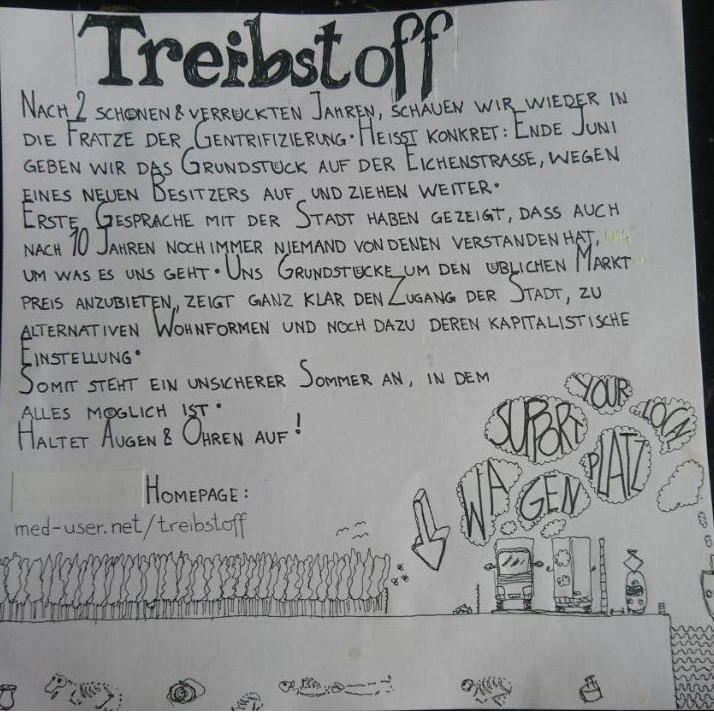 Treibstoff
NACH 2 SCHÖNEN & VERRÜCKTEN JAHREN, SCHAUEN WIR WIEDER IN
DIE FRATZE DER GENTRIFIZIERUNG. HEISST KONKRET: ENDE JUNI
GEBEN WIR DAS GRUNDSTÜCK AUF DER EICHENSTRASSE, WEGEN
EINES NEUEN BESITZERS AUF UND ZIEHEN WEITER.
ERSTE GESPRÄCHE MIT DER STADT HABEN GEZEIGT, DASS AUCH
NACH 10 JAHREN NOCH IMMER NIEMAND VON DENEN VERSTANDEN HAT,
UM WAS ES UNS GEHT. UNS GRUNDSTÜCKE UM DEN ÜBLICHEN MARKT
PREIS ANZUBIETEN, ZEIGT GANZ KLAR DEN ZUGANG DER STADT, ZU
ALTERNATIVEN WOHNFORMEN UND NOCH DAZU DEREN KAPITALISTISCHE
EINSTELLUNG.
SOMIT STEHT EIN UNSICHERER SOMMER AN, IN DEM
ALLES MÖGLICH IST.
HALTET AUGEN & OHREN AUF!
SUPPORT YOUR LOCAL
WAGENPLATZ
HOMEPAGE:
med-user.net/treibstoff